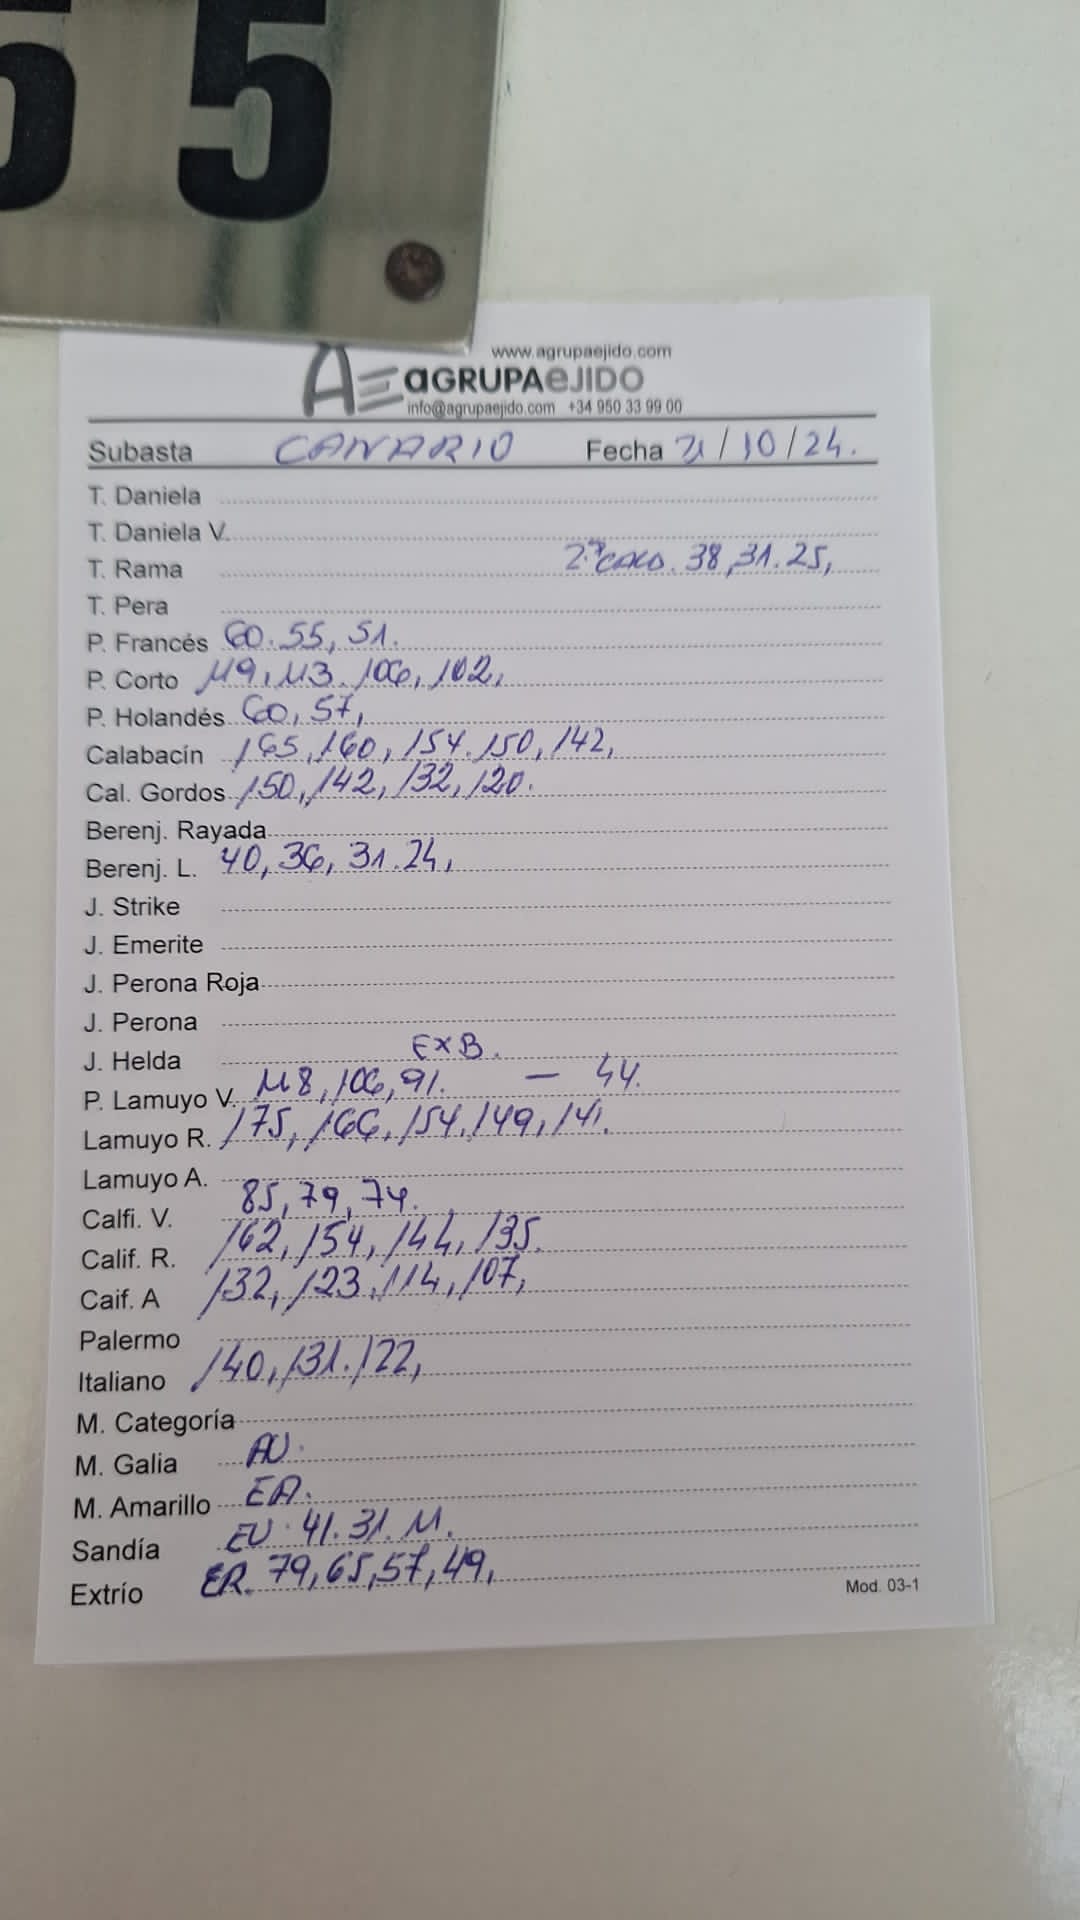 55
www.agrupaejido.com
AE AGRUPAEJIDO
info@agrupaejido.com +34 950 33 99 00
Subasta CANARIO Fecha 21/10/24.
T. Daniela
T. Daniela V.
T. Rama 38,31.25,
T. Pera
P. Francés 60.55,51.
P. Corto 119,113.106,102,
P. Holandés 60,57,
Calabacín 165,160,154.150,142,
Cal. Gordos 150,142,132,120.
Berenj. Rayada
Berenj. L. 40,36,31.24,
J. Strike
J. Emerite
J. Perona Roja
J. Perona
J. Helda EXB.
P. Lamuyo V. 118,106,91. — 44.
Lamuyo R. 175,166,154,149,141.
Lamuyo A.
Calfi. V. 85,79,74.
Calif. R. 162,154,144,135.
Caif. A 132,123,114,107,
Palermo
Italiano 140,131.122,
M. Categoría
M. Galia AU.
M. Amarillo EA.
Sandía EU. 41.31.11.
Extrío ER. 79,65,57,49,
Mod. 03-1